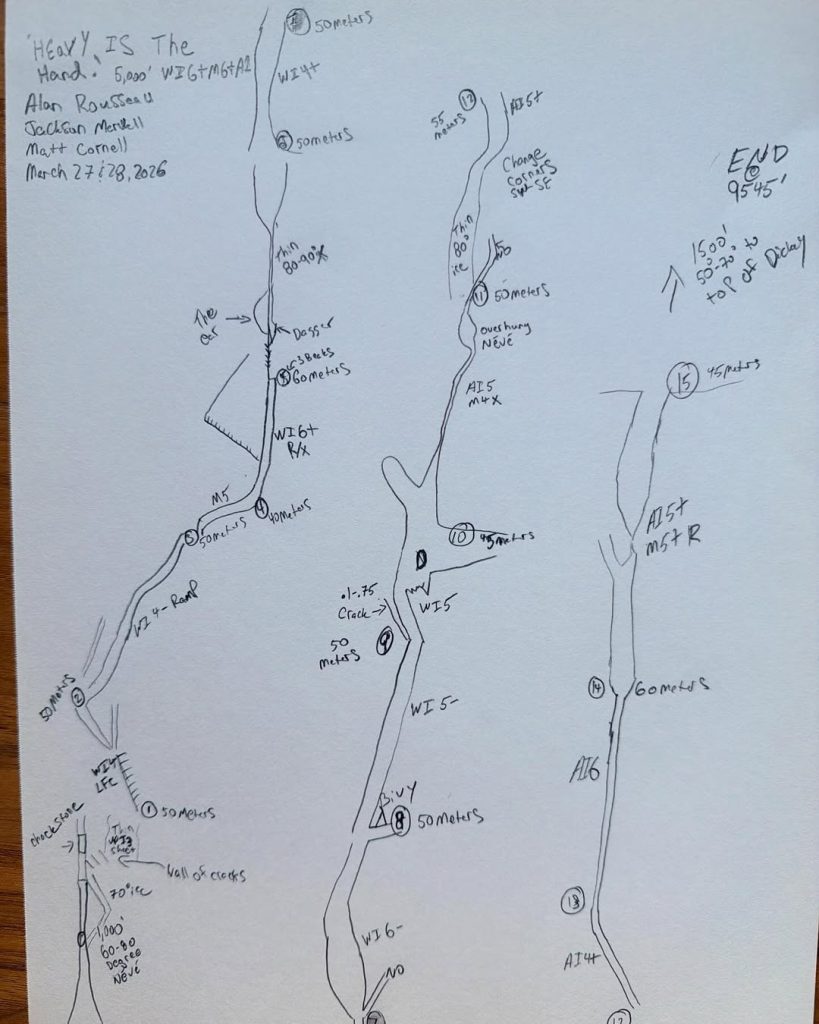 'HEAVY IS The
Hand.' 5,000' WI6+M6+A2
Alan Rousseau
Jackson Marvell
Matt Cornell
March 27&28, 2026
50meters
WI4+
6 50meters
Thin
80-90° X
The
ear
Dagger
3 Beaks
5 60meters
WI6+
R/X
M5
4 40meters
3 50meters
WI4- Ramp
50meters
2
WI4
1 50meters
chockstone
Thin
WI3
sheet
Wall of cracks
70° ice
1,000'
60-80
Degree
Névé
12
55
meters
AI5+
Change
corners
Thin
80°
ice
NO
11 50meters
overhung
NÉVÉ
AI5
M4X
10 45meters
.1-.75
Crack
WI5
9
50
meters
WI5-
Bivy
8 50meters
WI6-
NO
7
END
@
9545'
1500'
50°-70° to
top of Dickey
15 45meters
AI5+
M5+ R
14 60meters
AI6
13
AI4+
12